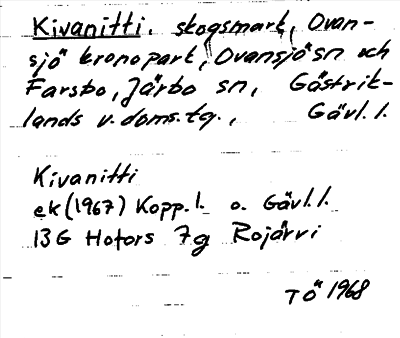 Kivanitti, skogsmark, Ovan-
sjö kronopark, Ovansjö sn och
Farsbo, Järbo sn, Gästrik-
lands v. doms. tg., Gävl. l.
Kivanitti
ek (1967) Kopp. l. o. Gävl. l.
13G Hofors 7g Rojärvi
TÖ 1968